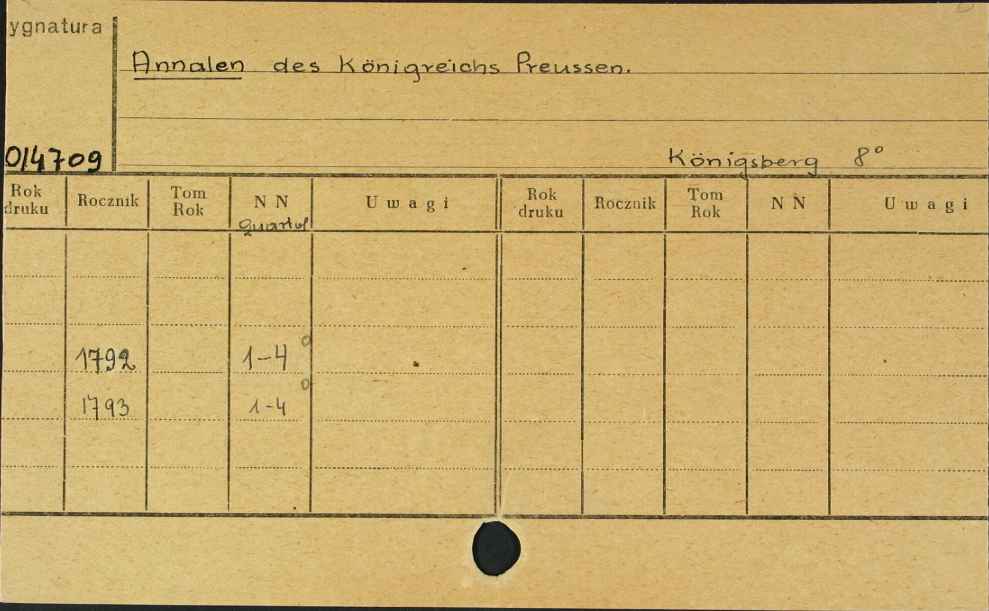 ygnatura
Annalen des Königreichs Preussen.
014709
Königsberg 8°
Rok druku Rocznik Tom Rok N N Uwagi Rok druku Rocznik Tom Rok N N Uwagi
Quartal
1792 1-4
1793 1-4